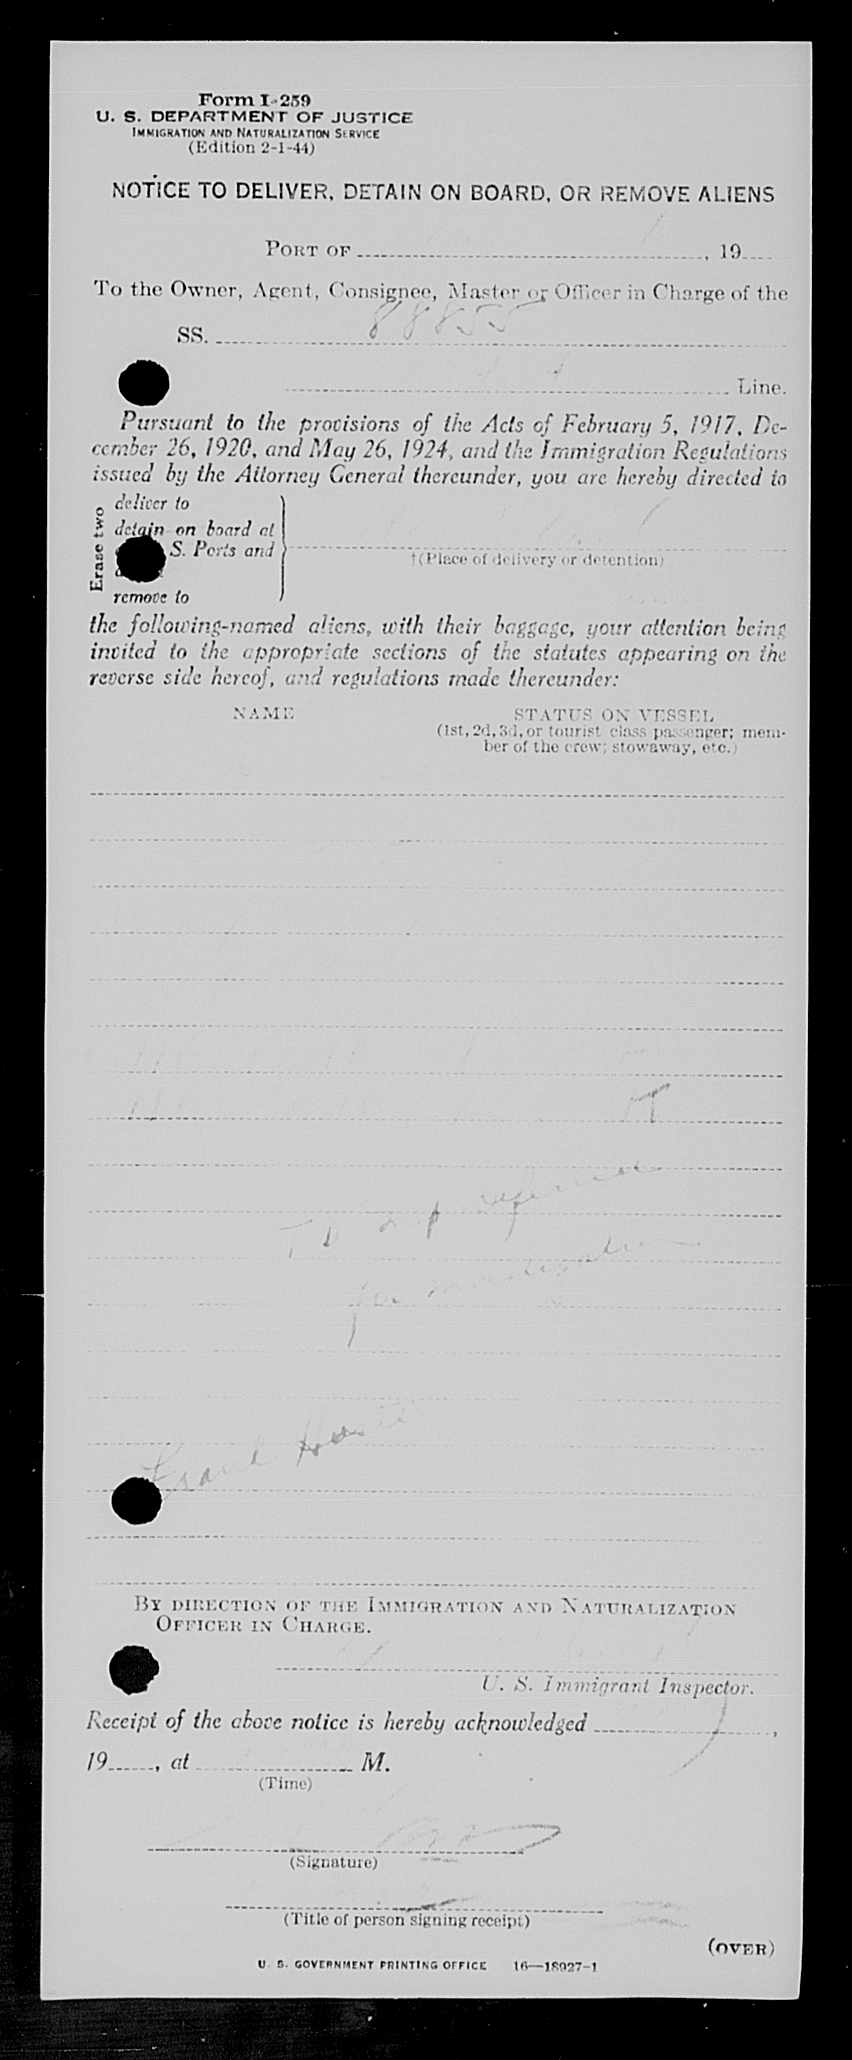 Form I-259
U. S. DEPARTMENT OF JUSTICE
IMMIGRATION AND NATURALIZATION SERVICE
(Edition 2-1-44)
NOTICE TO DELIVER, DETAIN ON BOARD, OR REMOVE ALIENS
PORT OF , 19
To the Owner, Agent, Consignee, Master or Officer in Charge of the
SS. 88855
Line.
Pursuant to the provisions of the Acts of February 5, 1917, De-
cember 26, 1920, and May 26, 1924, and the Immigration Regulations
issued by the Attorney General thereunder, you are hereby directed to
Erase two
deliver to
detain on board at
S. Ports and
remove to
†(Place of delivery or detention)
the following-named aliens, with their baggage, your attention being
invited to the appropriate sections of the statutes appearing on the
reverse side hereof, and regulations made thereunder:
NAME STATUS ON VESSEL
(1st, 2d, 3d, or tourist class passenger; mem-
ber of the crew; stowaway, etc.)
for
BY DIRECTION OF THE IMMIGRATION AND NATURALIZATION
OFFICER IN CHARGE.
U. S. Immigrant Inspector.
Receipt of the above notice is hereby acknowledged ,
19 , at M.
(Time)
(Signature)
(Title of person signing receipt)
(OVER)
U. S. GOVERNMENT PRINTING OFFICE 16—18027-1